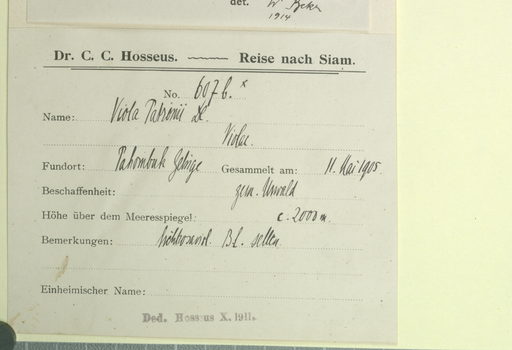 det. W. Becker
1914
Dr. C. C. Hosseus. Reise nach Siam.
No. 607 b. x
Name: Viola Patrinii DC.
Violac.
Fundort: Pahombuk Gebirge Gesammelt am: 11. Mai 1905.
Beschaffenheit: gem. Urwald
Höhe über dem Meeresspiegel: c. 2000 m.
Bemerkungen: Bl. selten.
Einheimischer Name:
Ded. Hosseus X. 1911.